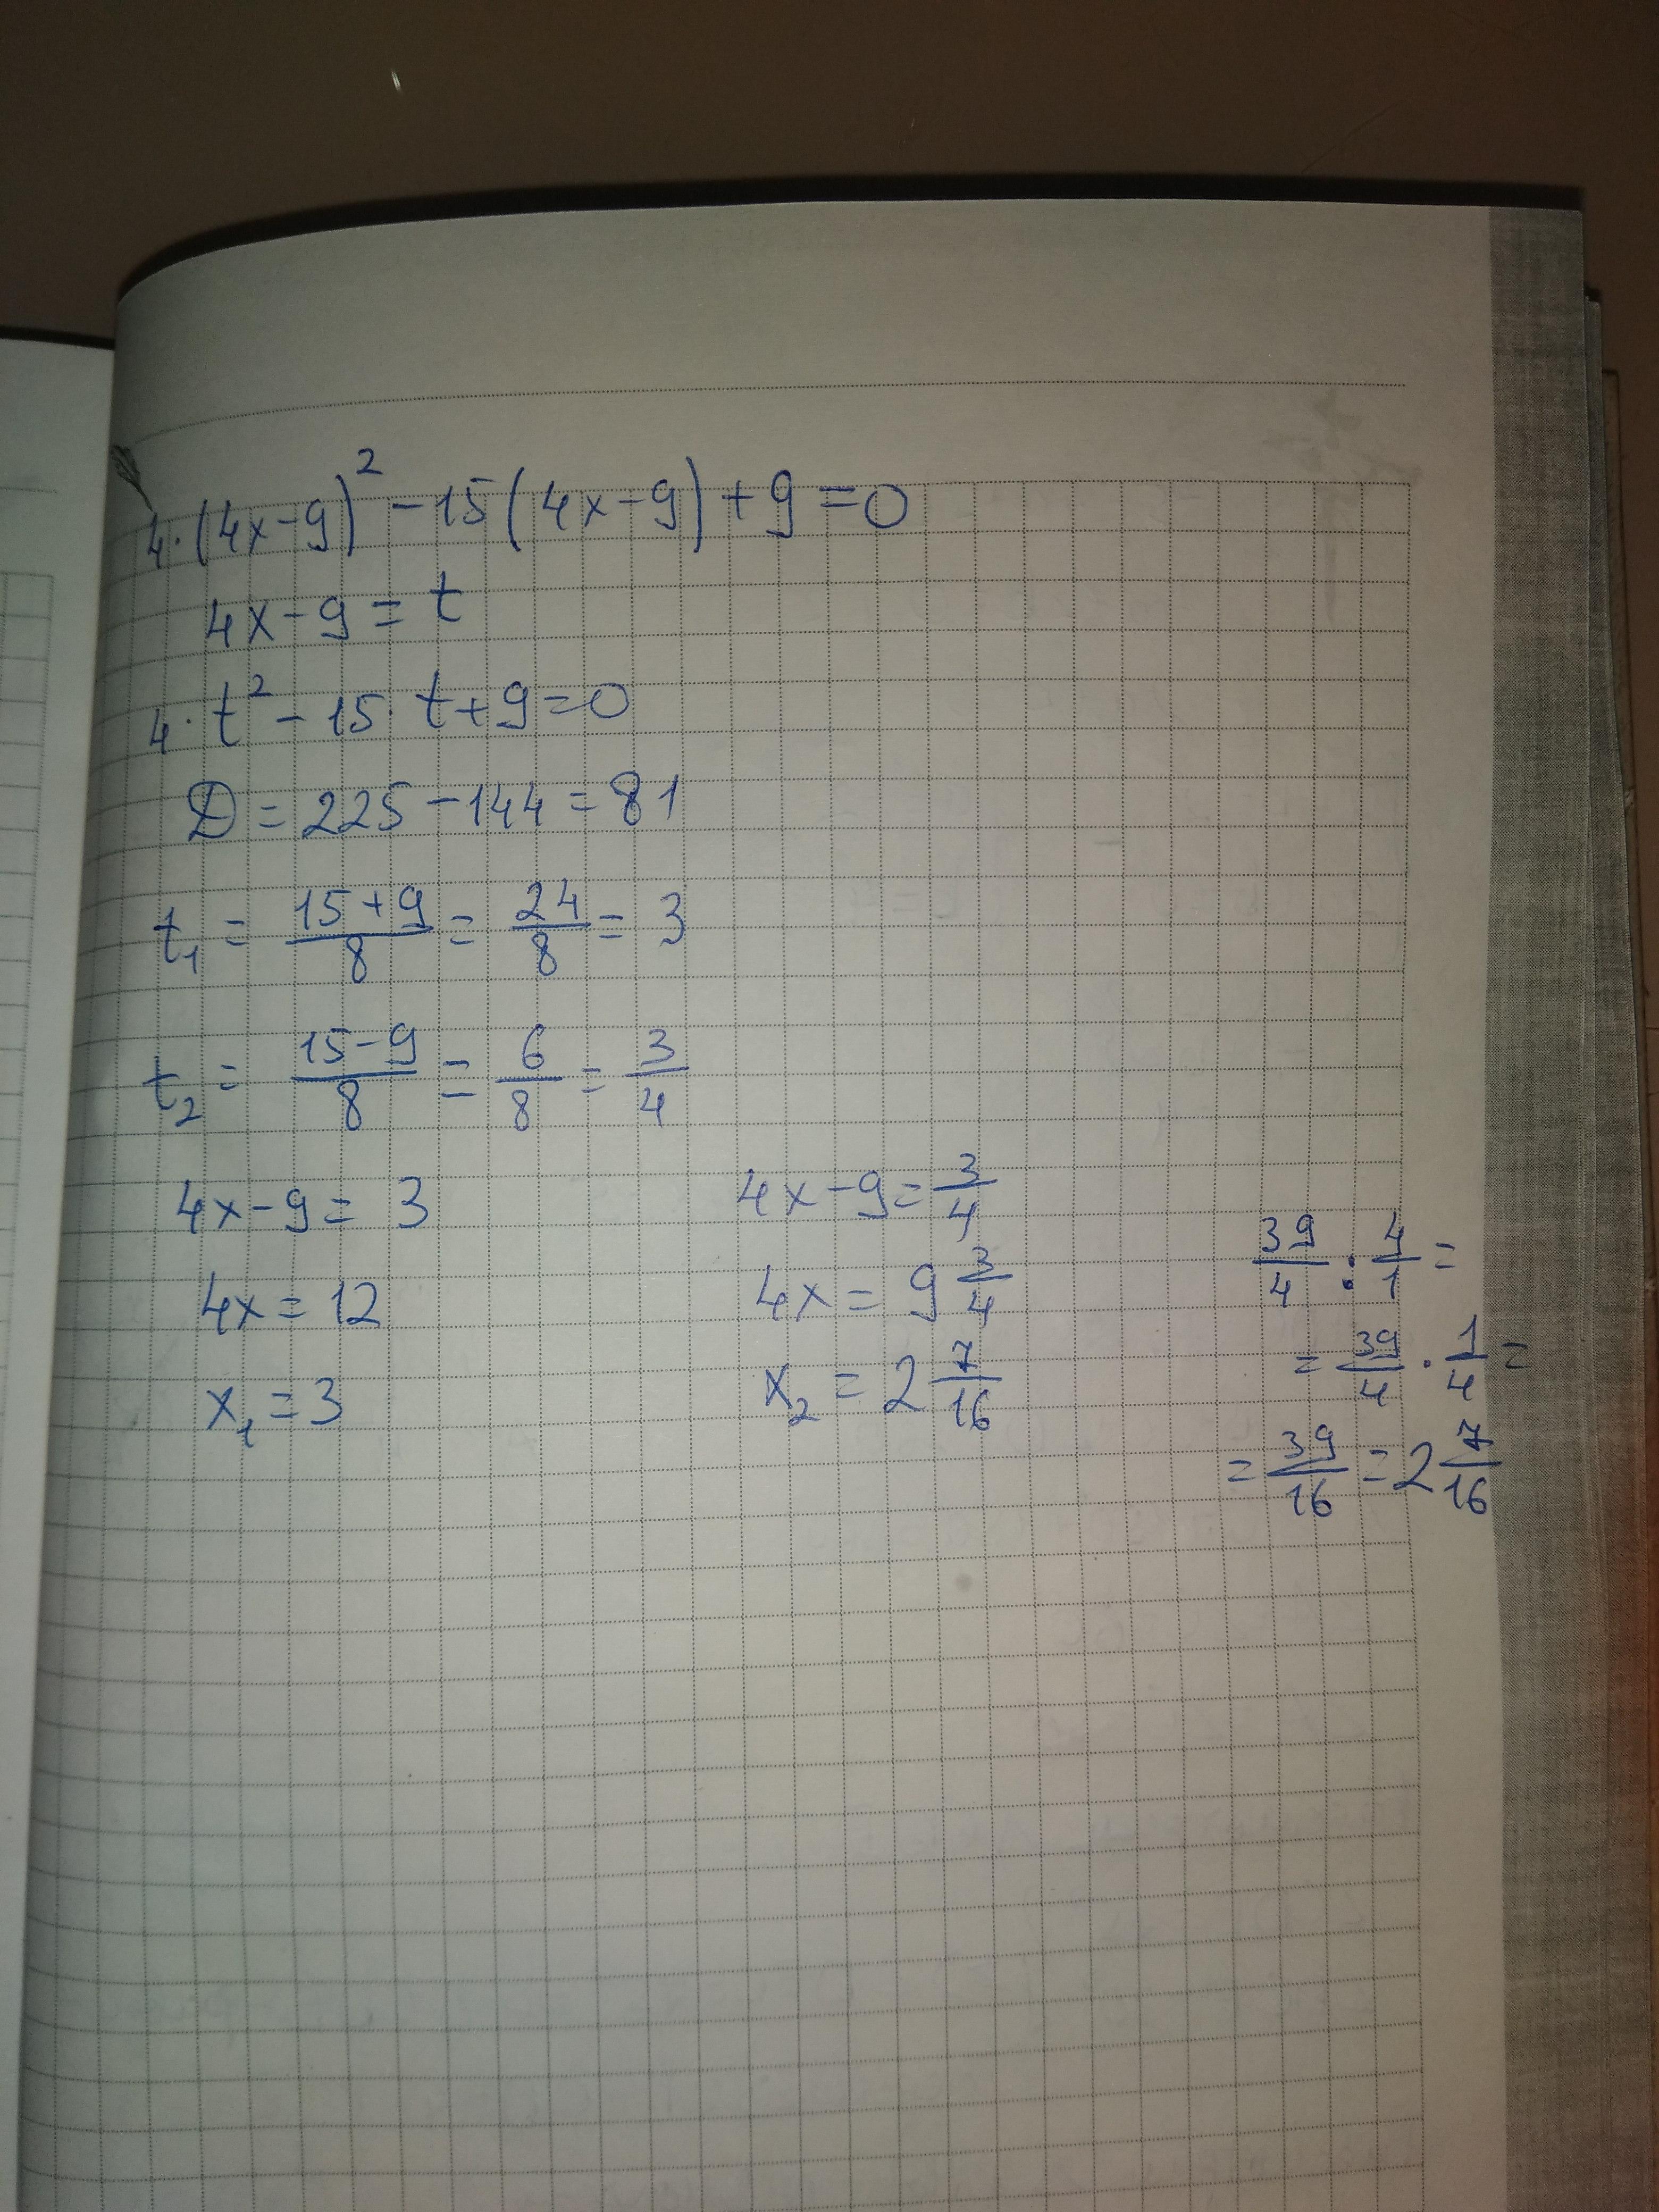 4·(4x-9)² -15(4x-9)+9=0
4x-9=t
4·t²-15·t+9=0
D=225-144=81
t₁ = (15+9)/8 = 24/8 = 3
t₂ = (15-9)/8 = 6/8 = 3/4
4x-9= 3
4x=12
x₁=3
4x-9=3/4
4x = 9 3/4
x₂ = 2 7/16
39/4 : 4/1 =
= 39/4 · 1/4 =
= 39/16 = 2 7/16